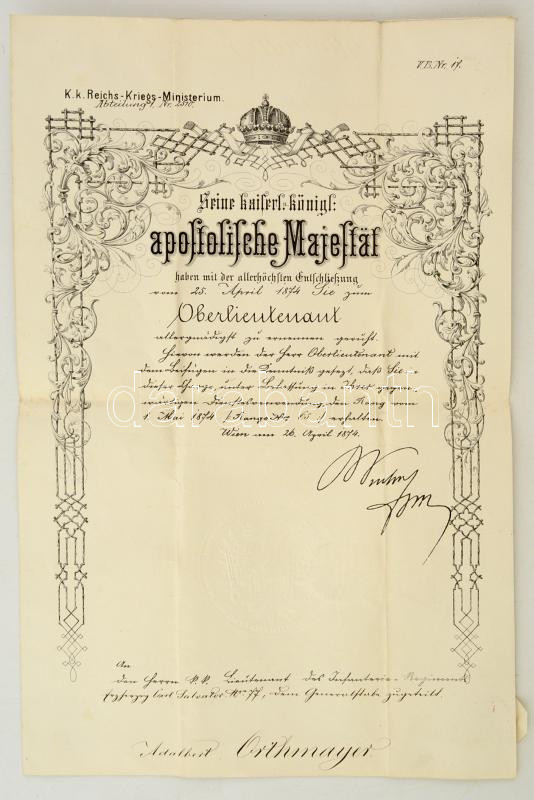 V.B.Nr. 17.
K.k. Reichs-Kriegs-Ministerium.
Abteilung 1. Nr. 2510.
Seine kaiserl: königl:
apostolische Majestät
haben mit der allerhöchsten Entschließung
vom 25. April 1874 Sie zum
Oberlieutenant
allergnädigst zu ernennen geruht.
Hievon werden der Herr Oberlieutenant mit
dem Beifügen in die Kenntniß gesezt, daß Sie in
dieser Charge, unter Belassung in Ihrer gegen-
wärtigen Dienstesverwendung den Rang vom
1. Mai 1874 erhalten.
Wien am 26. April 1874.
darabanth
An
den Herrn k.k. Lieutenant des Infanterie-Regiments
Erzherzog Carl Salvator No 77, dem Generalstabe zugeteilt.
Adalbert Orthmayer